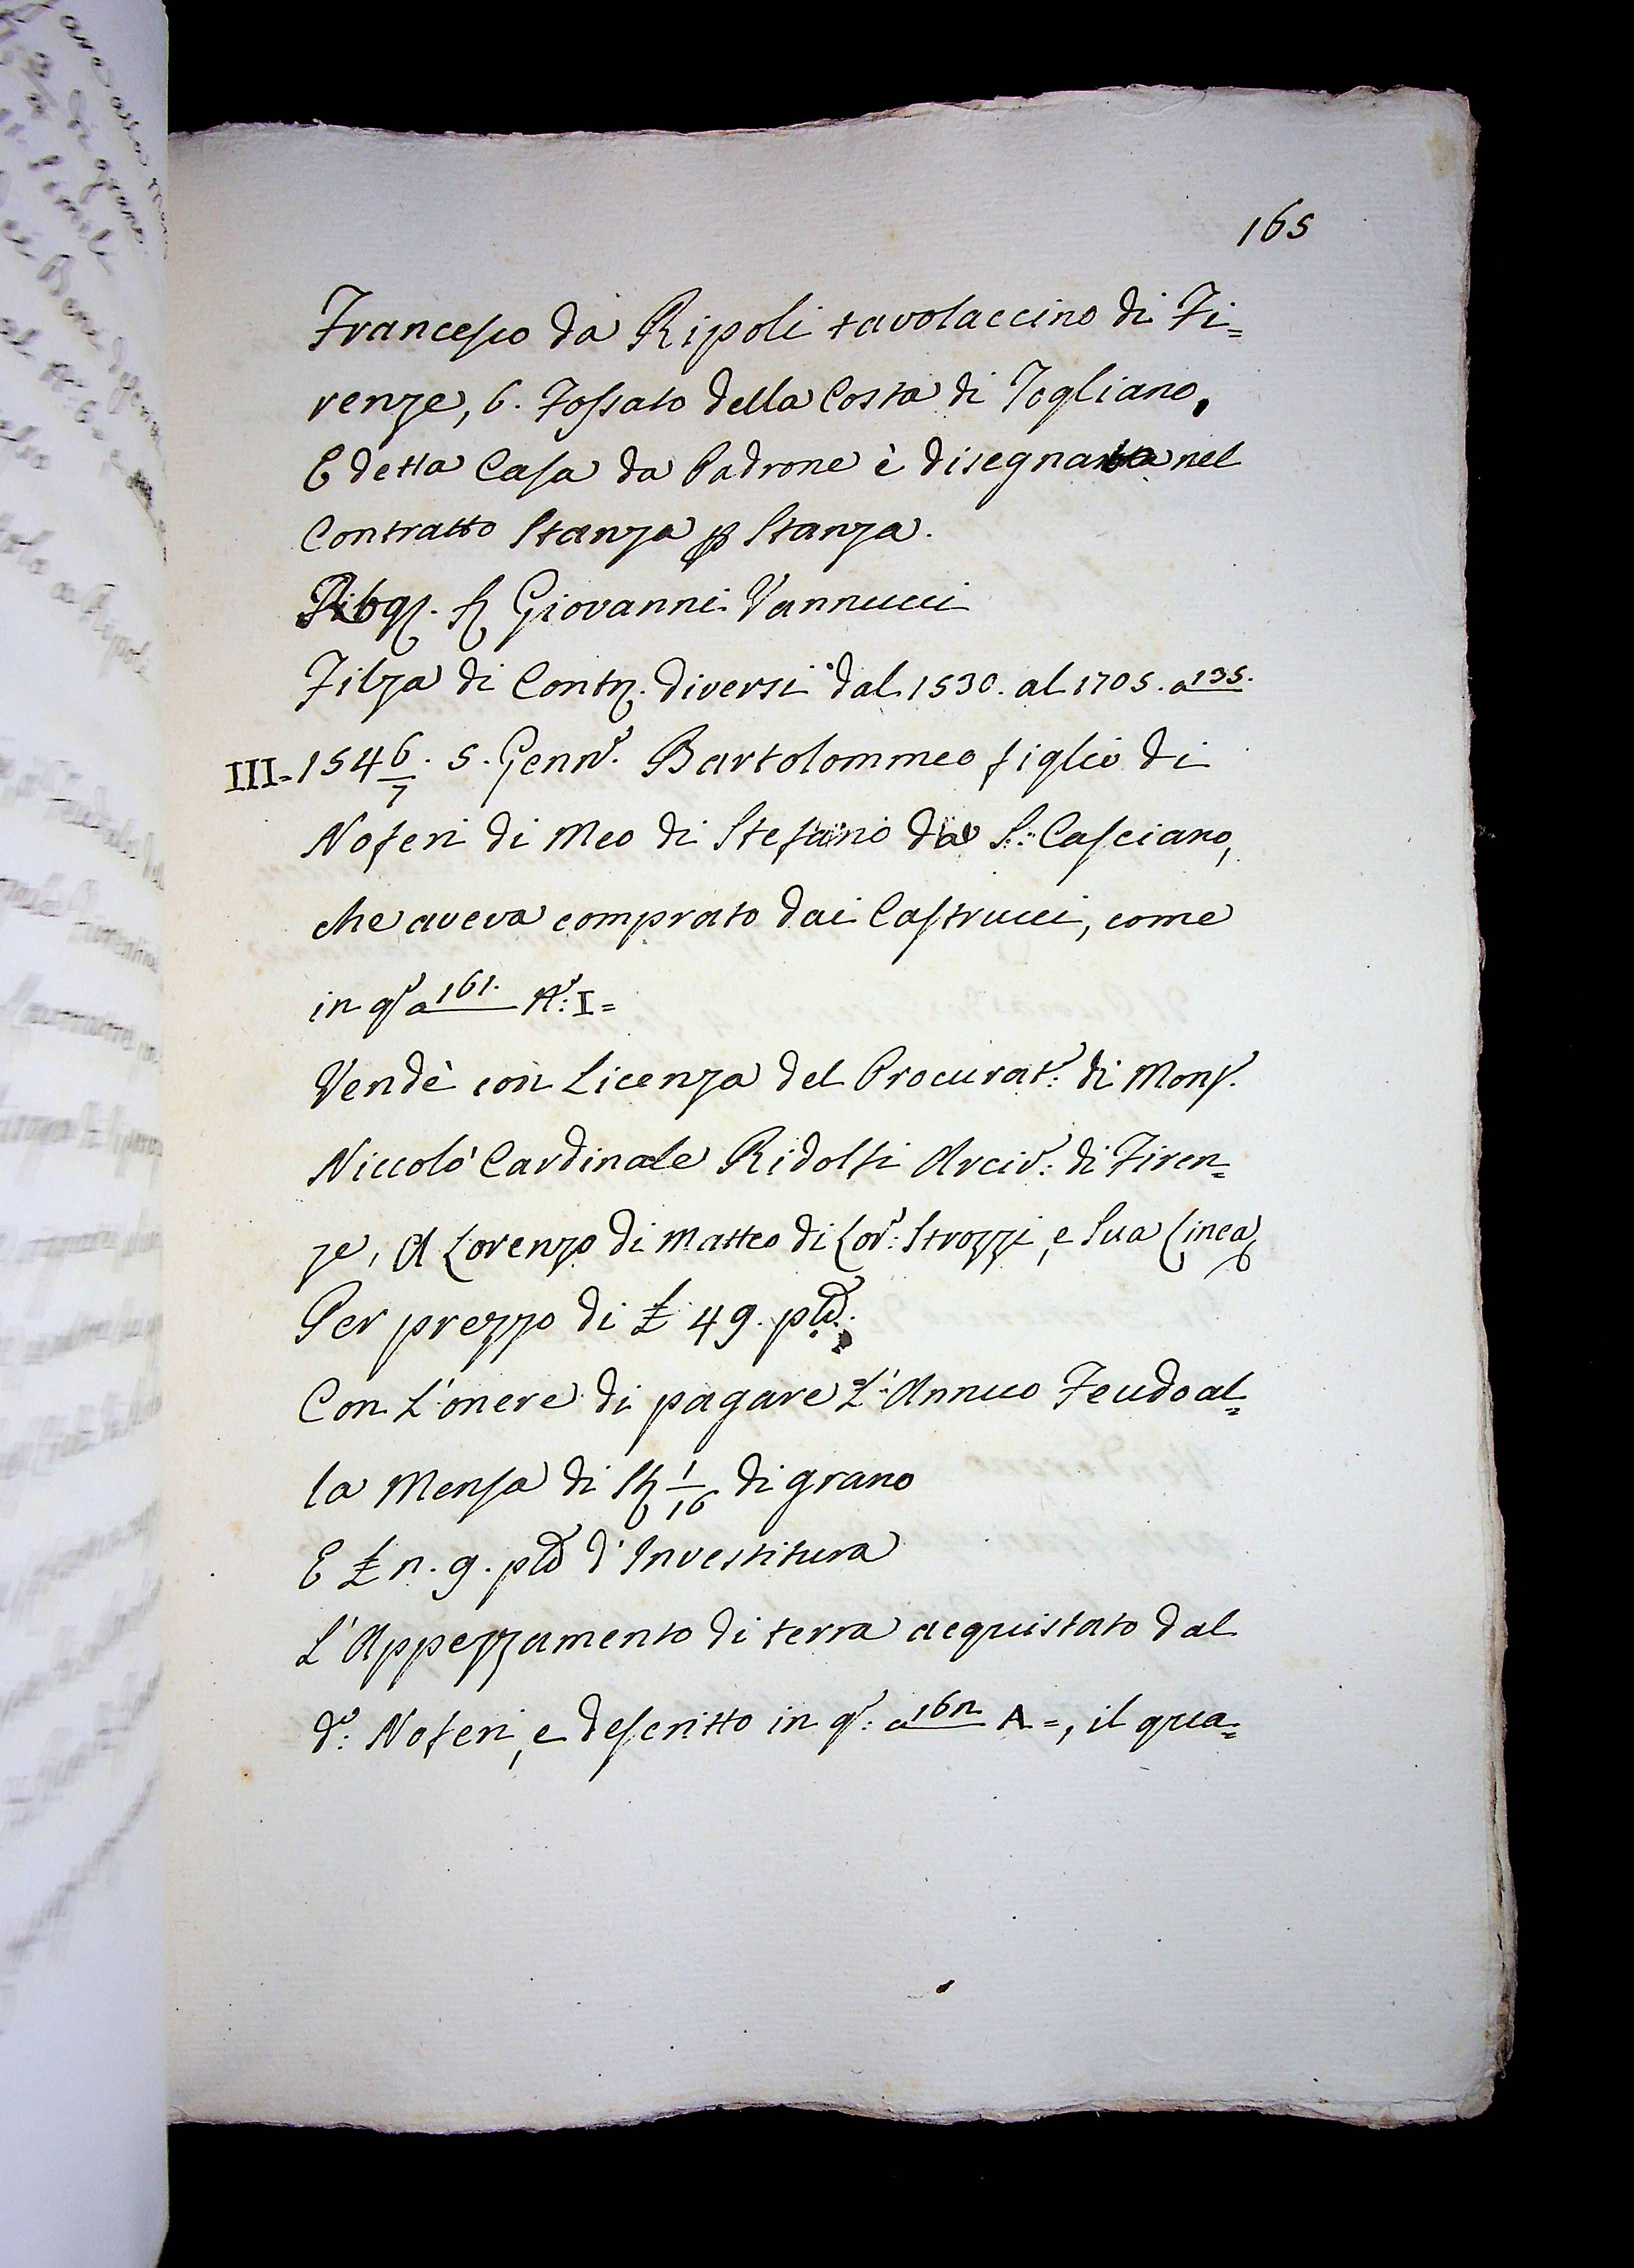 165
Francesco da Ripoli tavolaccino di Fi=
renze, 6. Fossato della Costa di Pogliano.
E detta Casa da Padrone è disegnata nel
Contratto Stanza p Stanza.
Ribq. S Giovanni Vannucci
Filza di Contr. diversi dal 1530. al 1705. a 135.
III = 154 6/7. 5. Genn.o Bartolommeo figlio di
Noferi di Meo di Stefano da S: Casciano,
che aveva comprato dai Castrucci, come
in q.o a 161. N.o: I =
Vendè con Licenza del Procurat.e: di Mons.
Niccolò Cardinale Ridolfi Arciv.o: di Firen=
ze, A Lorenzo di Matteo di Lor.o: Strozzi, e Sua Linea
Per prezzo di £ 49. pli.
Con L'onere di pagare L'Annuo Feudo al=
la Mensa di St 1/16 di grano
E £ n. 9. pli d'Investitura
L'Appezzamento di terra acquistato dal
d.o: Noferi, e descritto in q.o: a 162 A =, il qua=